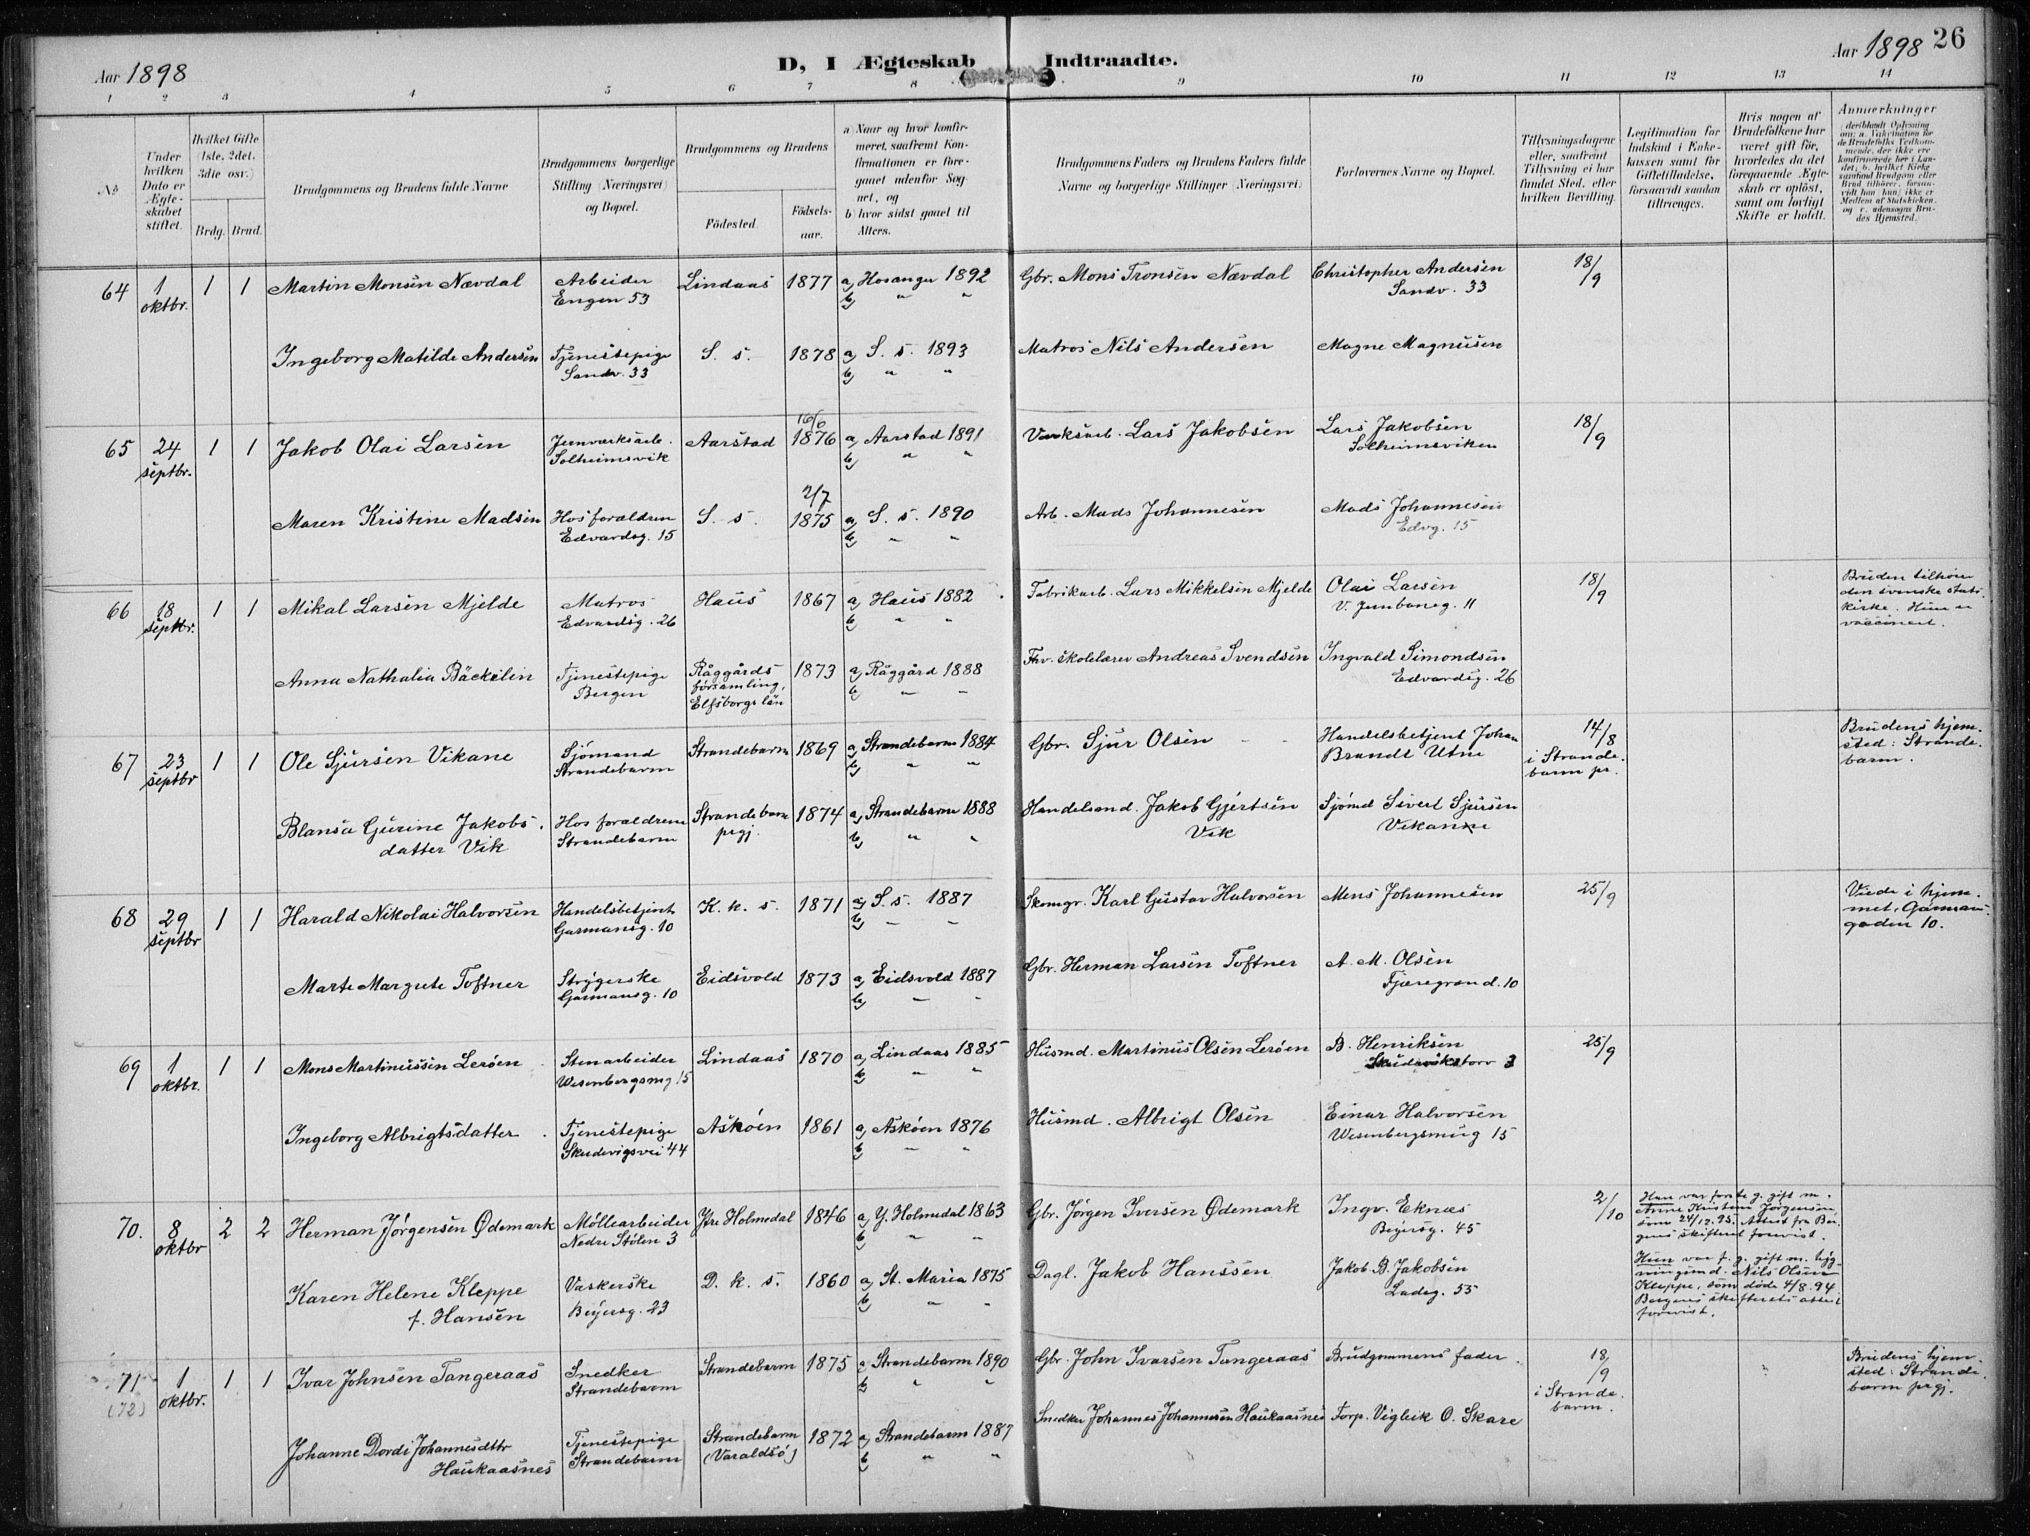 Aar 1898
D, I Ægteskab Indtraadte.
Aar 1898 26
1 2 3 4 5 6 7 8 9 10 11 12 13 14
No
Under hvilken Dato er Ægteskabet stiftet.
Hvilket Gifte (1ste, 2det, 3die osv.)
Brdg. Brud.
Brudgommens og Brudens fulde Navne
Brudgommens borgerlige Stilling (Næringsvei) og Bopæl.
Brudgommens og Brudens
Fødested. Fødselsaar.
a) Naar og hvor konfirmeret, saafremt Konfirmationen er foregaaet udenfor Sognet, og
b) hvor sidst gaaet til Alters.
Brudgommens Faders og Brudens Faders fulde Navne og borgerlige Stillinger (Næringsvei)
Forlovernes Navne og Bopæl.
Tillysningsdagene eller, saafremt Tillysning ei har fundet Sted, efter hvilken Bevilling.
Legitimation for Indskud i Enkekassen samt for Giftetilladelse, forsaavidt saadan tiltrænges.
Hvis nogen af Brudefolkene har været gift før, hvorledes da det foregaaende Ægteskab er opløst, samt om lovligt Skifte er holdt.
Anmerkninger
64 1 oktbr. 1 1 Martin Monsen Nævdal Arbeider Engen 53 Lindaas 1877 a) Hosanger 1892 b) " " Gbr. Mons Tronsen Nævdal Christopher Andersen Sandv. 33 18/9
Ingeborg Matilde Andersen Tjenestepige Sandv. 33 S. s. 1878 a) S. s. 1893 b) " " Matros Nils Andersen Magne Magnusen
65 24 septbr. 1 1 Jakob Olai Larsen Jernværksarb. Solheimsvik Aarstad 16/6 1876 a) Aarstad 1891 b) " " Værksarb. Lars Jakobsen Lars Jakobsen Solheimsviken 18/9
Maren Kristine Madsen Hos forældrene Edvardsg. 15 S. s. 2/7 1875 a) S. s. 1890 b) " " Arb. Mads Johannesen Mads Johannesen Edvg. 15
66 18 septbr. 1 1 Mikal Larsen Mjelde Matros Edvardsg. 26 Haus 1867 a) Haus 1882 b) " " Fabrikarb. Lars Mikkelsen Mjelde Olai Larsen V. Jernbaneg. 11 18/9 Bruden tilhører den svenske statskirke. Hun er vaccineret.
Anna Nathalia Bäckelin Tjenestepige Bergen Råggårds församling, Elfsborgs län 1873 a) Råggård 1888 b) " " Fhv. skolelærer Andreas Svendsen Ingvald Simondsen Edvardsg. 26
67 23 septbr 1 1 Ole Sjursen Vikane Sjømand Strandebarm Strandebarm 1869 a) Strandebarm 1884 b) " " Gbr. Sjur Olsen Handelsbetjent Johan Brandt Utne 14/8 i Strandebarm pr. Brudens hjemsted: Strandebarm.
Blansa Gurine Jakobsdatter Vik Hos forældrene Strandebarm Strandebarm prgj. 1874 a) Strandebarm 1888 b) " " Handelsmd. Jakob Gjertsen Vik Sjømd Sivert Sjursen Vikane
68 29 septbr 1 1 Harald Nikolai Halvorsen Handelsbetjent Garmansg. 10 K. k. s. 1871 a) S. s. 1887 b) " " Skomgr. Karl Gustav Halvorsen Mens Johannesen 25/9 Viede i hjemmet, Garmansgaden 10.
Marte Margrete Toftner Strygerske Garmansg. 10 Eidsvold 1873 a) Eidsvold 1887 b) " " Gbr. Herman Larsen Toftner A. M. Olsen Fjæregrænd. 10
69 1 oktbr. 1 1 Mons Martinussen Lerøen Stenarbeider Wesenbergsmg 15 Lindaas 1870 a) Lindaas 1885 b) " " Husmd. Martinus Olsen Lerøen B. Henriksen Skudevikstorv 3 25/9
Ingeborg Albrigtsdatter Tjenestepige Skudevigsvei 44 Askøen 1861 a) Askøen 1876 b) " " Husmd. Albrigt Olsen Einar Halvorsen Wesenbergsmug 15
70. 8 oktbr 2 2 Herman Jørgensen Ødemark Møllearbeider Nedre Stølen 3 Ytre Holmedal 1846 a) Y. Holmedal 1863 b) " " Gbr. Jørgen Iversen Ødemark Ingv. Eknæs Beyersg. 45 2/10 Han var første g. gift m. Anne Kristine Jørgensen, død 24/12 93. Attest fra Bergens skifteret forevist.
Karen Helene Kleppe f. Hansen Vaskerske Beyersg. 23 D. k. s. 1860 a) St. Maria 1875 b) " " Dagl. Jakob Hanssen Jakob B. Jakobsen Ladeg. 55 Hun var f. g. gift m. bygningsmd. Nils Olsen Kleppe, som døde 4/8 94 Bergens skifterets attest forevist.
71 (72) 1 oktbr. 1 1 Ivar Johnsen Tangeraas Snedker Strandebarm Strandebarm 1875 a) Strandebarm 1890 b) " " Gbr. John Ivarsen Tangeraas Brudgommens fader. 18/9 i Strandebarm. Brudens hjemsted: Strandebarm prgj.
Johanne Dordi Johannesdttr Haukaasnes Tjenestepige Strandebarm Strandebarm (Varaldsø) 1872 a) Strandebarm 1887 b) " " Snedker Johannes Johannesen Haukaasnes Forp. Vigleik O. Skare